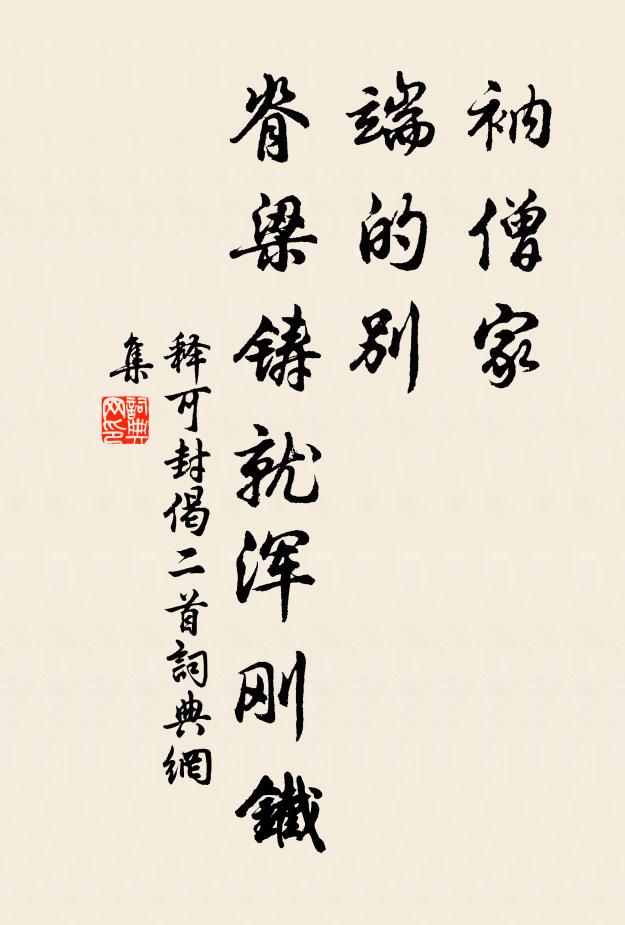 衲僧家
端的别
脊梁鑄就浑刚鐵
释可封偈二首詞典網
集
詞典
网印